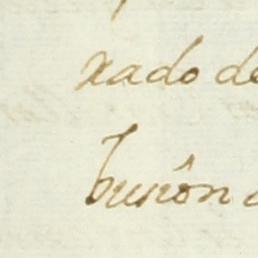 xado de
busiôn